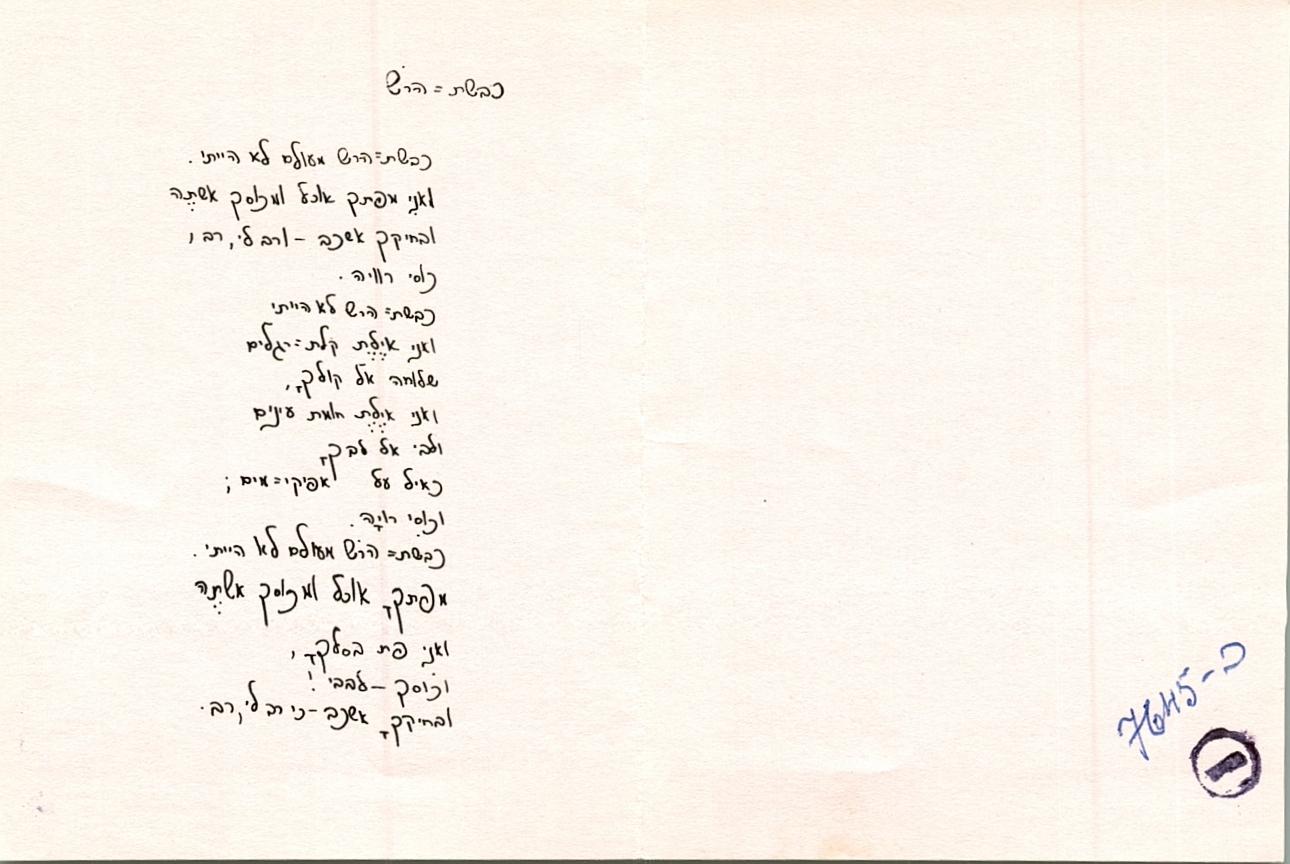 כבשת=הרש
כבשת=הרש מעולם לא הייתי.
ואני מפתך אוכל ומכוסך אשתֶה
ובחיקך אשכב – ורב לי, רב,
כוסי רוויה.
כבשת=הרש לא הייתי
ואני איֶלֶת קלת=רגלים
שלוחה אל קולךָ,
ואני איֶלֶת חומת עינים
ולבי אל לבךָ
כאיל על אפיקי=מים;
וכוסי רויָה.
כבשת=הרש מעולם לא הייתי.
מפתךָ אוכל ומכוסך אשתֶה
ואני פת בסלךָ,
וכוסך – לבבי!
ובחיקךָ אשכב – כי רב לי, רב.
7645-כ